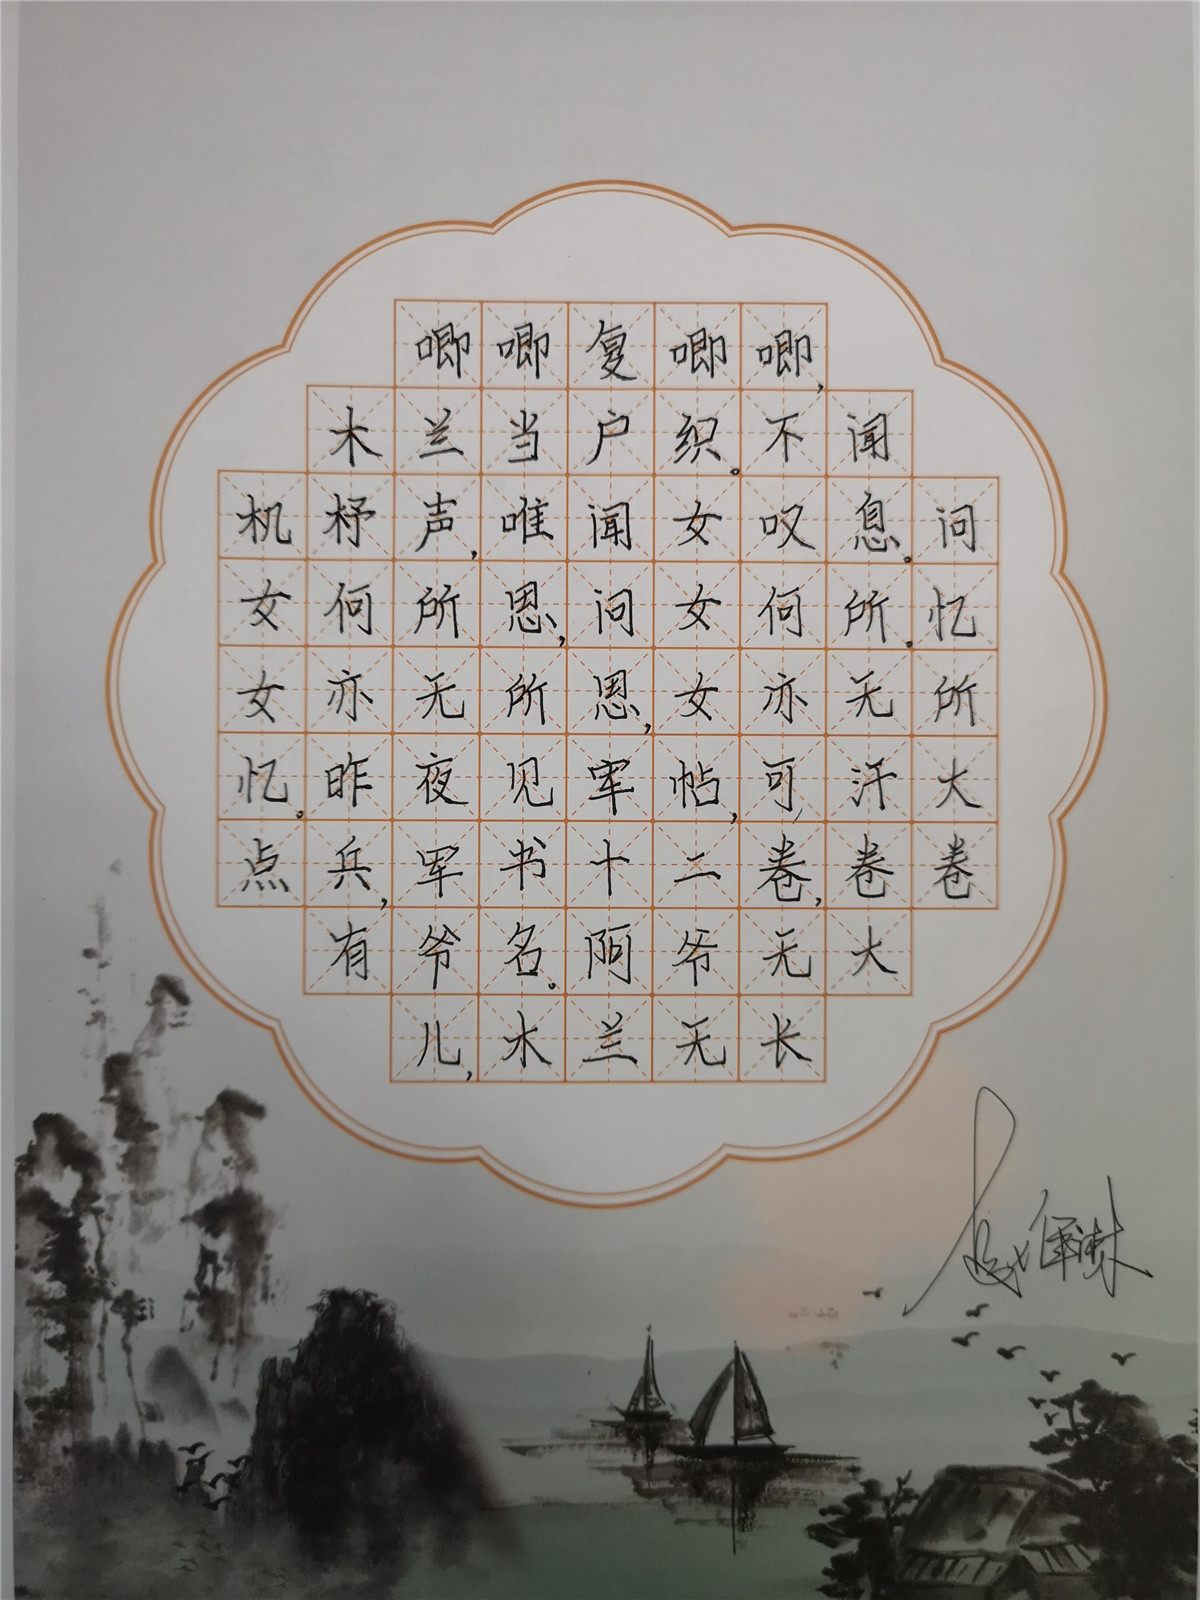 唧唧复唧唧,
木兰当户织。不闻
机杼声,唯闻女叹息。问
女何所思,问女何所.忆
女亦无所思,女亦无所
忆。昨夜见军帖,可汗大
点兵,军书十二卷,卷卷
有爷名。阿爷无大
儿,木兰无长